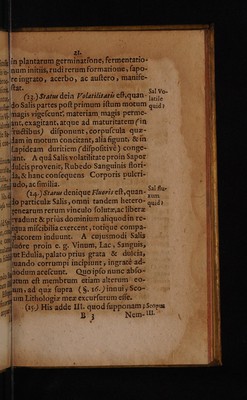 21.
in plantarum germinatione, fermentatio-
num initiis, rudi rerum formatione, sapo-
re ingrato, acerbo, ac austero, manife-
stat.
(13.) Status dein Volatilitatis est, quan-
do Salis partes post primum istum motum
magis vigescunt, materiam magis perme-
ant, exagitant, atque ad maturitatem (in
fructibus) disponunt, corpuscula quæ-
dam in motum concitant, alia figunt, & in
lapideam duritiem (dispositive) conge-
lant. A quâ Salis volatilitate proin Sapor
dulcis provenit, Rubedo Sanguinis flori-
da, & hanc consequens Corporis pulcri-
tudo, ac similia.
Sal Vo-
latile
quid?
(14.) Status denique Fluoris est, quan-
do particulæ Salis, omni tandem hetero-
genearum rerum vinculo solutæ, ac liberæ
evadunt & prius dominium aliquod in re-
liqua miscibilia exercent, totique compa-
acorem indunt. A cujusmodi Salis
fluore proin e. g. Vinum, Lac, Sanguis,
ut Edulia, palato prius grata & dulcia,
quando corrumpi incipiunt, ingratè ad-
modum acescunt. Quo ipso nunc abso-
lutum est membrum etiam alterum eo-
rum, ad quæ supra (§. 16.) innui, Sco-
pum Lithologiæ meæ excursurum esse.
Sal flu-
quid?
(15.) His adde III. quod supponam; Scopus
III.
B 3 Nem-